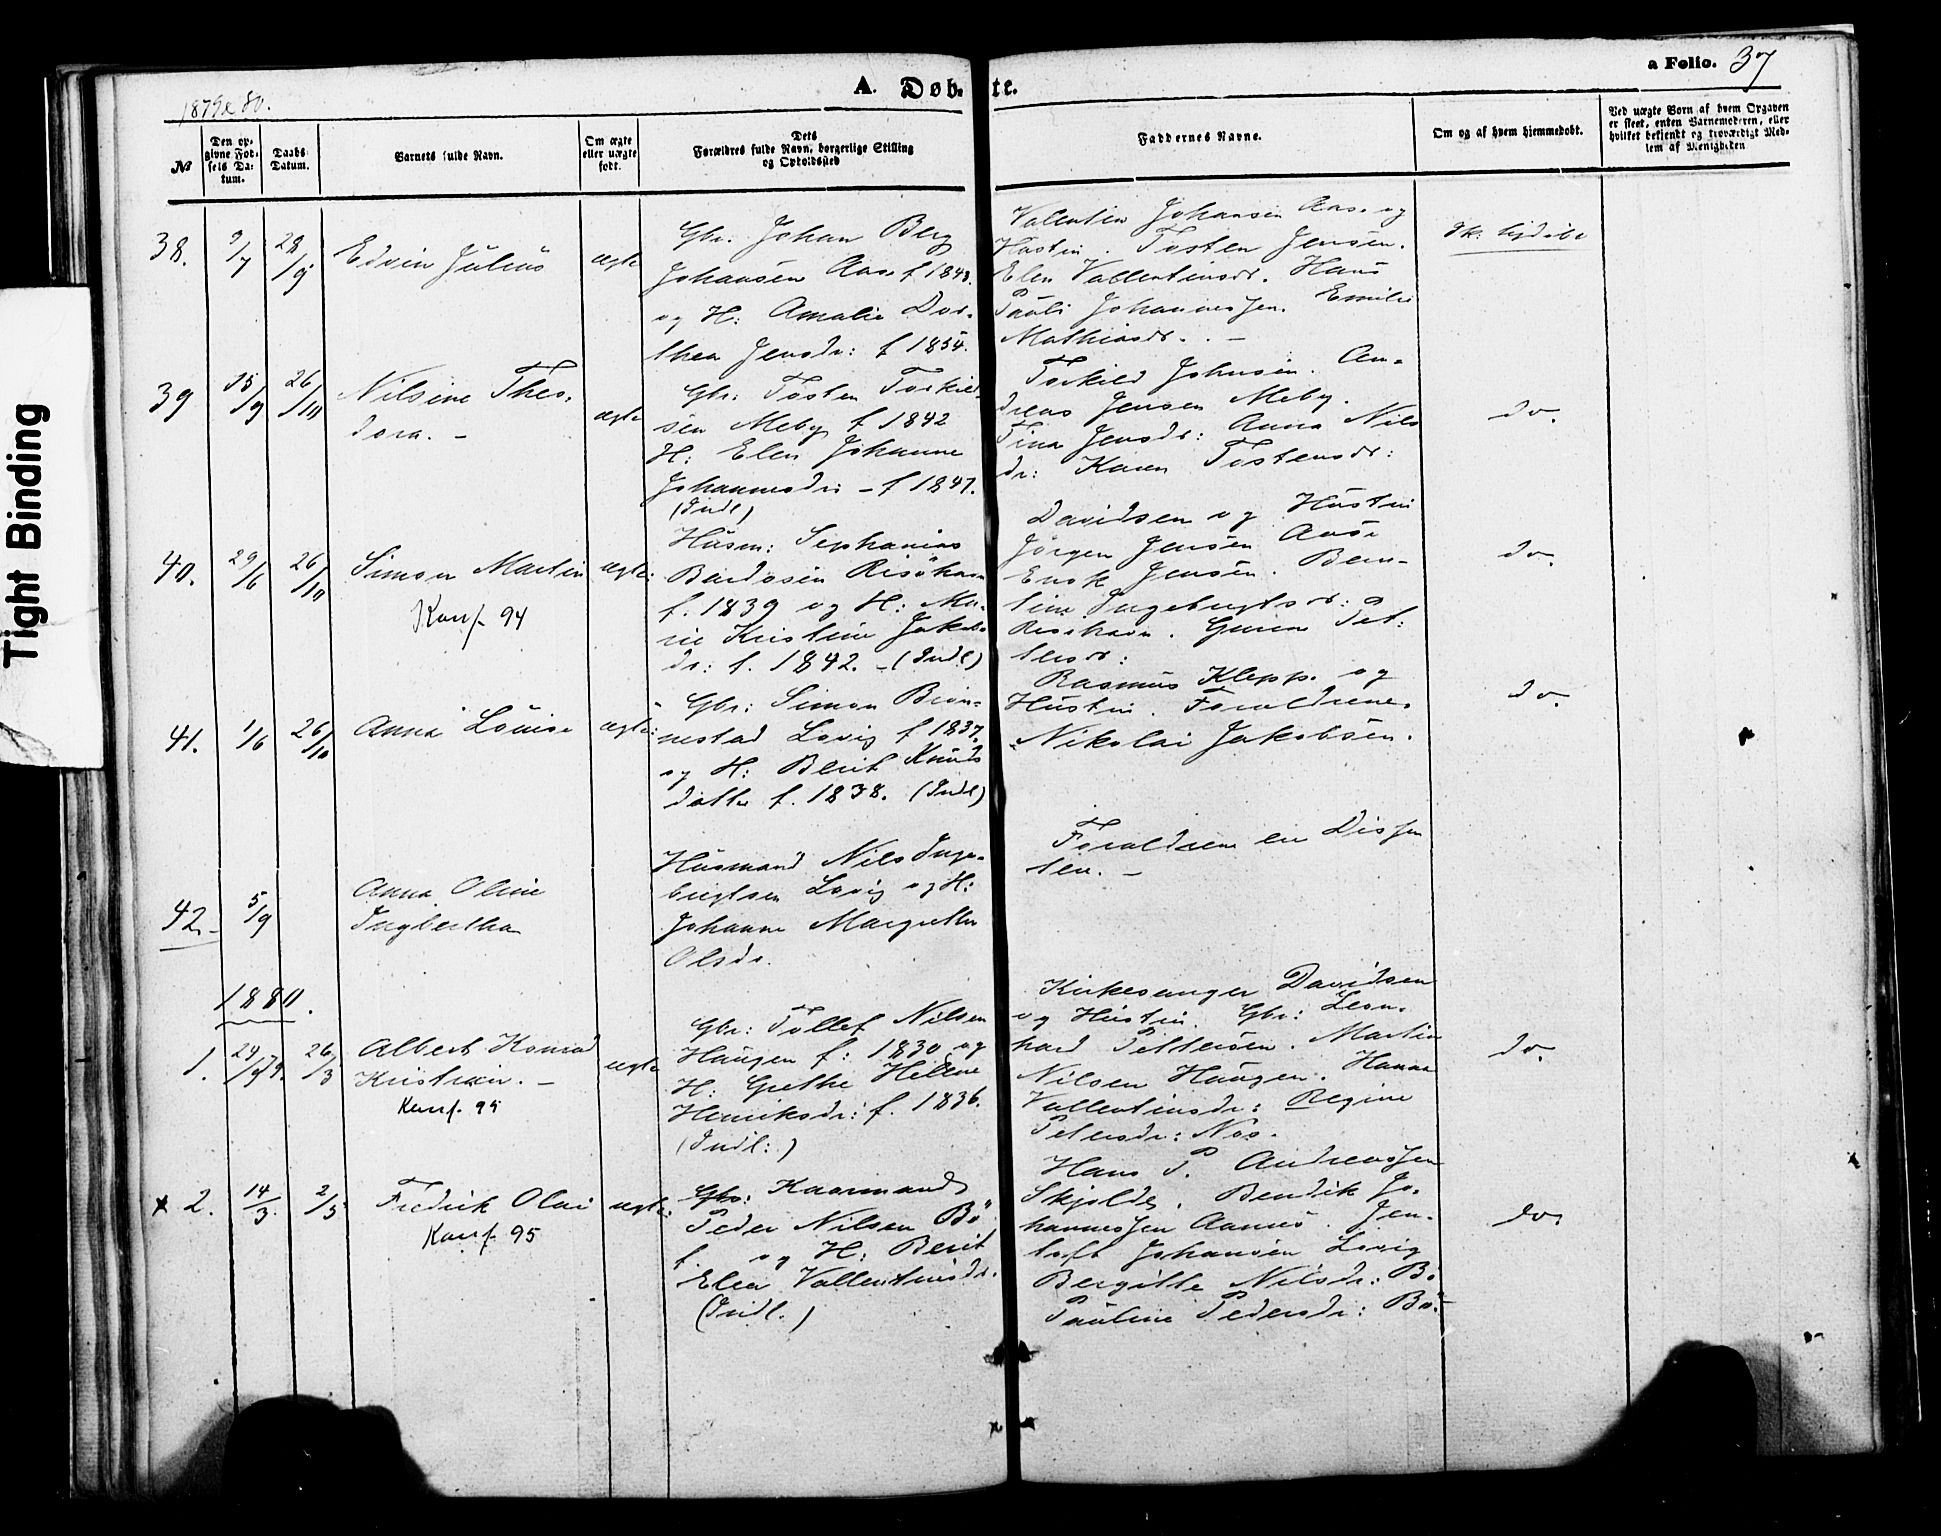 1879 & 80.
A. Døbte.
a Folio. 37
№
Den opgivne Fødsels Datum.
Daabs Datum.
Barnets fulde Navn.
Om ægte eller uægte født.
Dets Forældres fulde Navn, borgerlige Stilling og Opholdssted
Faddernes Navne.
Om og af hvem hjemmedøbt.
Ved uægte Børn af hvem Opgaven er skeet, enten Barnemoderen, eller hvilket bekjendt og troværdigt Medlem af Menigheden
38.
9/7
28/9
Edvin Julius
ægte
Gbr. Johan Berg
Johansen Aas f 1848.
og H: Amalie Dor-
thea Jensdr: f 1854.
Vallentin Johansen Aas. og
Hustru. Tosten Jensen.
Elen Vallentinsdr. Hans
Pauli Johannessen. Emilie
Mathiasdr. . -
39
15/9
26/10
Nilsine Theo-
dora. -
ægte
Gbr: Tosten Torkild-
sen Meby f 1842
H: Elen Johanne
Johannesdr - f 1847.
(Indl)
Torkild Johnsen. An-
dreas Jensen Meby.
Tina Jensdr: Anna Nils
dr: Karen Tostensdr:
do.
40.
29/6
26/10
Simon Martin
Konf. 94
ægte:
Husm: Sephanias
Bardosen Risøhavn
f. 1839 og H: Ma-
rie Kristine Jakobs
dr: f. 1842. - (Indl)
Davidsen og Hustru
Jørgen Jensen Aase
Enok Jensen. Bern-
tine Ingebrigtsdr:
Risøhavn. Guren Det-
lesdr:
do.
41.
1/6
26/10
Anna Louise
ægte:
Gbr: Simon Brøn-
nestad Lovig f 1837.
og H: Berit Knuds
datter f. 1838. (Indl)
Rasmus Klepp. og
Hustru. Forældrene.
Nikolai Jakobsen.
do.
42.-
5/9
Anna Oline
Ingbertha
Husmand Nils Inge-
brigtsen Lovig og H:
Johanne Margrethe
Olsdr.
Forældrene ere Dissen
ter. -
1880.
1.
26/3
Albert Konrad
Kristian. -
Konf. 95
ægte
Gbr: Tollef Nilsen
Haugen f: 1830 og
H: Grethe Hellene
Henriksdr: f. 1836.
(Indl:)
Kirkesanger Davidsen
og Hustru. Gbr: Leon-
hard Pettersen. Martin
Nilsen Haugen. Hanna
Vallentinsdr: Regine
Petersdr: Nos.
do.
x 2.
14/3.
2/5
Fredrik Olai
Konf 95
ægte:
Gbr: Kaarmand
Peder Nilsen Bø
f. og H: Berit
Elen Vallentinsdr.
(Indl.)
Hans P. Andreassen
Skjolde. Bendik Jo-
hannessen Aanes. Jen-
toft Johansen Lovig
Bergitte Nilsdr: Bø
Pauline Pedersdr: Bø.
do.
Tight Binding